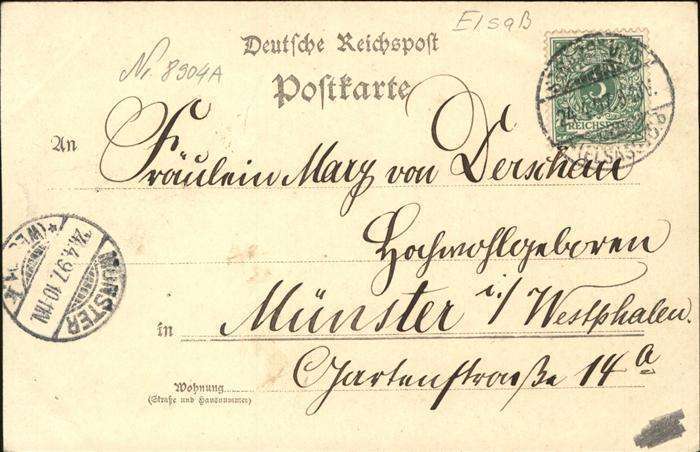 Elsaß
Nr. 8904A
Deutsche Reichspost
Postkarte
5
REICHSPOST
(ELSASS)
An Fräulein Mary von Derschau
Hochwohlgeboren
in Münster i/ Westphalen.
Gartenstraße 14a
Wohnung
(Straße und Hausnummer)
MÜNSTER
24.4.97. 10-11N.